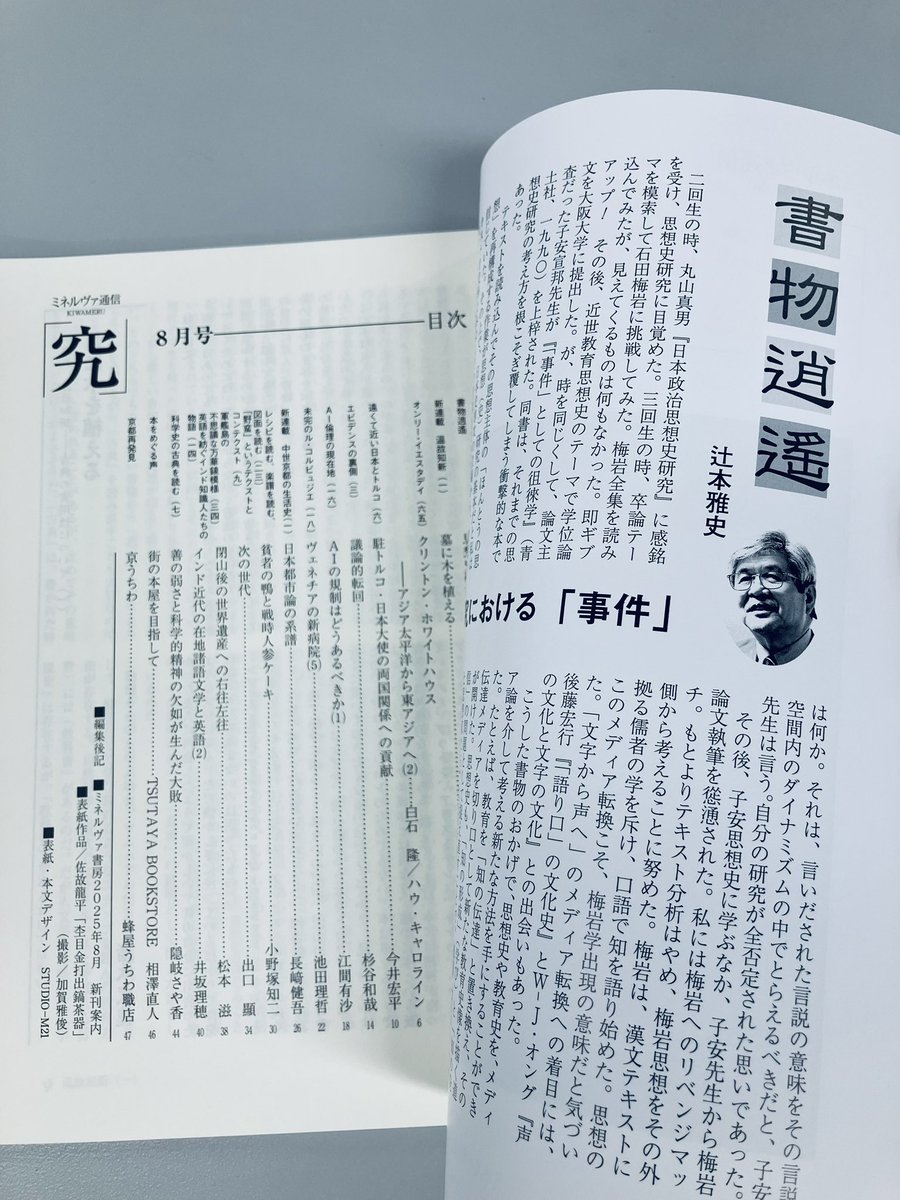 書物逍遥
辻本雅史
における「事件」
二回生の時、丸山真男『日本政治思想史研究』に感銘
を受け、思想史研究に目覚めた。三回生の時、卒論テー
マを模索して石田梅岩に挑戦してみた。梅岩全集を読み
込んでみたが、見えてくるものは何もなかった。即ギブ
アップ！　その後、近世教育思想史のテーマで学位論
文を大阪大学に提出した。が、時を同じくして、論文主
査だった子安宣邦先生が『「事件」としての徂徠学』（青
土社、一九九〇）を上梓された。同書は、それまでの思
想史研究の考え方を根こそぎ覆してしまう衝撃的な本で
あった。
テキストを読み込んでその思想主体の「ほんとうの思
は何か。それは、言いだされた言説の意味をその言説
空間内のダイナミズムの中でとらえるべきだと、子安
先生は言う。自分の研究が全否定された思いであった。
その後、子安思想史に学ぶなか、子安先生から梅岩
論文執筆を慫慂された。私には梅岩へのリベンジマッ
チ。もとよりテキスト分析はやめ、梅岩思想をその外
側から考えることに努めた。梅岩は、漢文テキストに
拠る儒者の学を斥け、口語で知を語り始めた。思想の
このメディア転換こそ、梅岩学出現の意味だと気づい
た。「文字から声へ」のメディア転換への着目には、
後藤宏行『「語り口」の文化史』とW-J・オング『声
の文化と文字の文化』との出会いもあった。
こうした書物のおかげで、思想史や教育史を、メディ
ア論を介して考える新たな方法を手にすることができ
た。たとえば、教育を「知の伝達」と置き換え、その
伝達メディアを切り口として新たな教育史像を描く道
ミネルヴァ通信
KIWAMERU
「究」
8月号
目次
書物逍遥
新連載　温故知新（一）
墓に木を植える
オンリー・イエスタデイ（六五）
クリントン・ホワイトハウス
――アジア太平洋から東アジアへ(2)
白石　隆／ハウ・キャロライン
6
遠くて近い日本とトルコ（六）
駐トルコ・日本大使の両国関係への貢献
今井宏平
10
エビデンスの裏側（三）
議論的転回
杉谷和哉
14
AI倫理の現在地（一六）
AIの規制はどうあるべきか(1)
江間有沙
18
未完のル・コルビュジエ（一八）
ヴェネチアの新病院(5)
池田理哲
22
新連載　中世京都の生活史（一）
日本都市論の系譜
長﨑健吾
26
レシピを読む、楽譜を読む、
図面を読む（二三）
貧者の鴨と戦時人参ケーキ
小野塚知二
30
「野蛮」というテクストと
コンテクスト（九）
次の世代
出口　顯
34
軍艦島の
不思議な万華鏡模様（三四）
閉山後の世界遺産への右往左往
松本　滋
38
英語を紡ぐインド知識人たちの
物語（一四）
インド近代の在地諸語文学と英語(2)
井坂理穂
40
科学史の古典を読む（七）
善の弱さと科学的精神の欠如が生んだ大敗
隠岐さや香
44
本をめぐる声
街の本屋を目指して
TSUTAYA BOOKSTORE　相澤直人
46
京都再発見
京うちわ
蜂屋うちわ職店
47
■編集後記　■ミネルヴァ書房2025年8月　新刊案内
■表紙作品／佐故龍平「杢目金打出鎬茶器」
（撮影／加賀雅俊）
■表紙・本文デザイン　STUDIO-M21